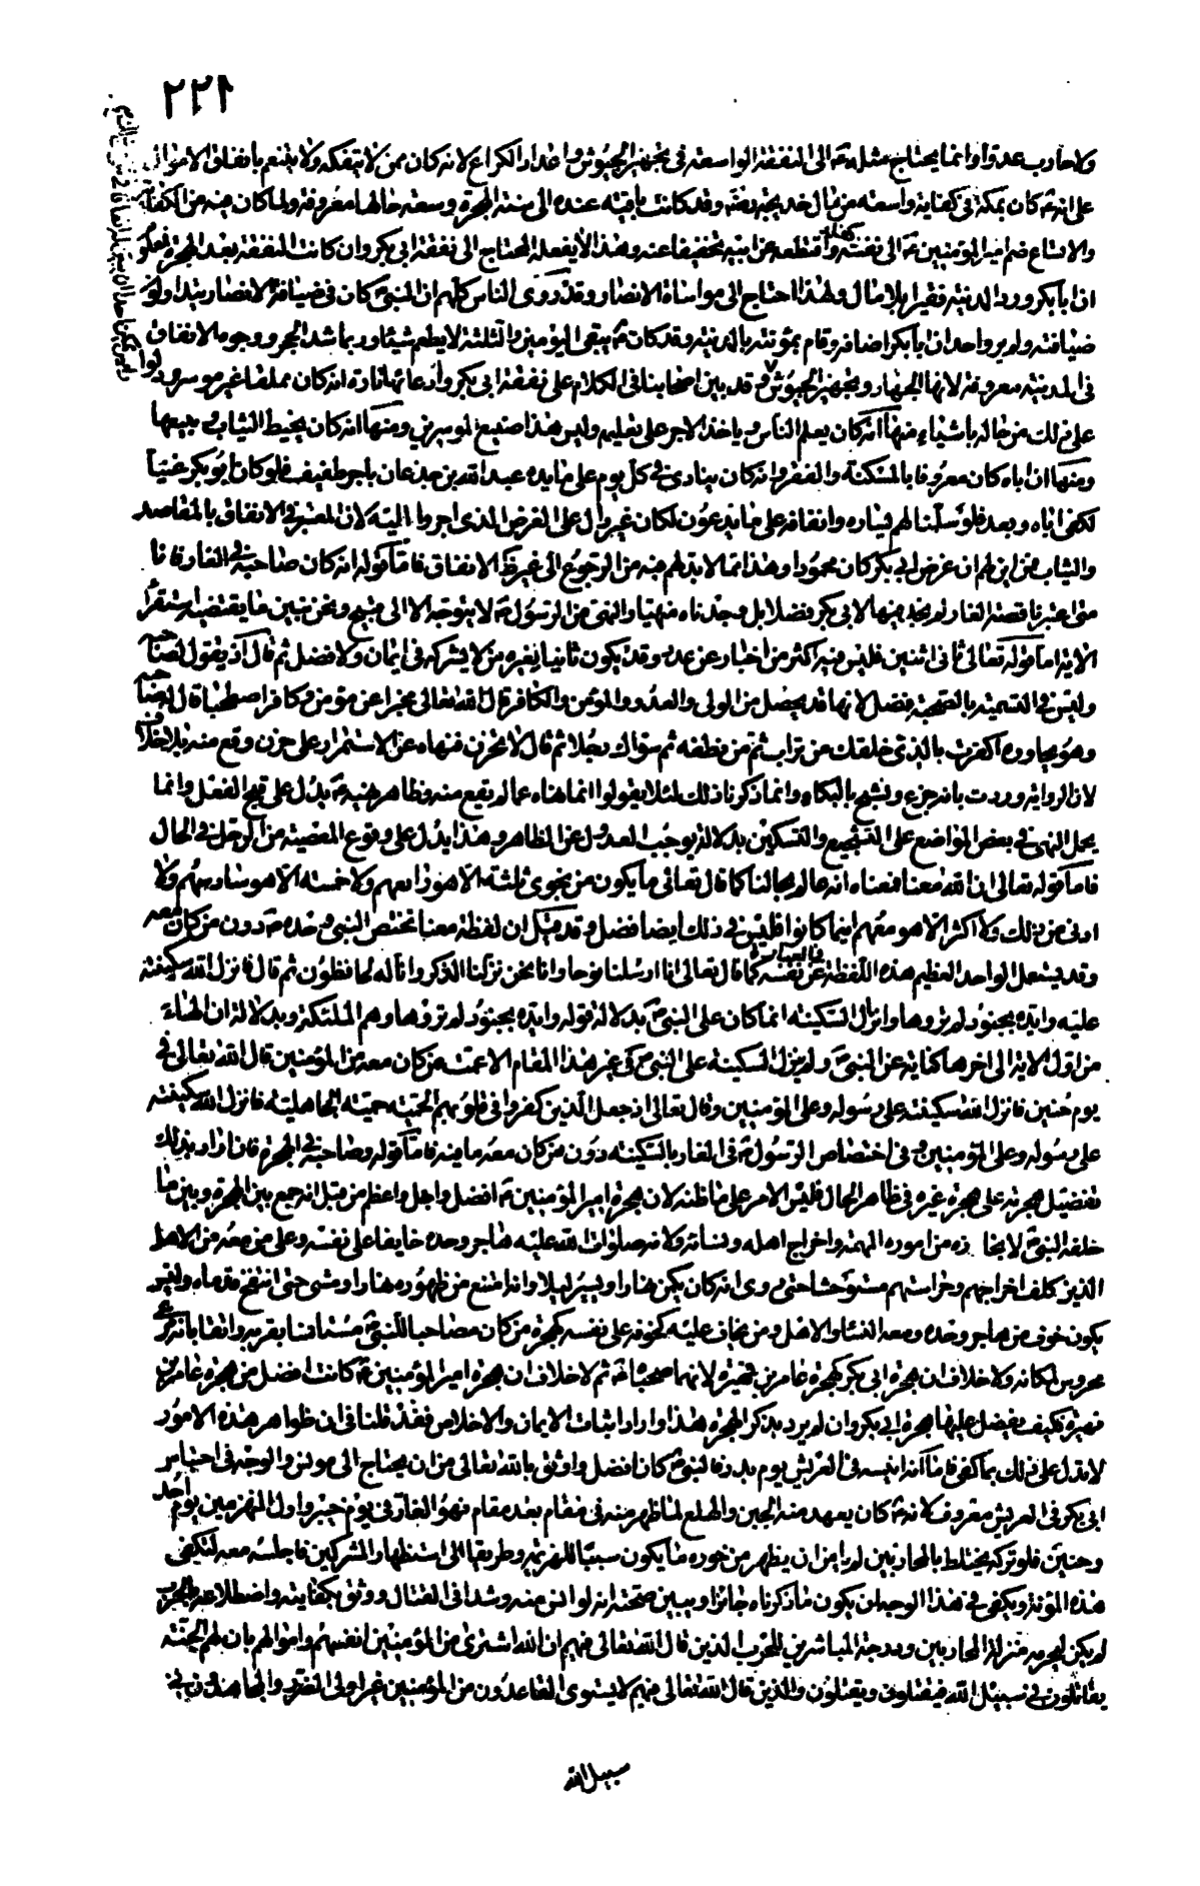 ٢٢١
ولا حارب عدوا وانما يحتاج مثله ع الى النفقة الواسعة في تجهيز الجيوش واعداد الكراع لانه كان ممن لا يتفكه ولا يتنعم بانفاق الاموال
على انه ع كان بمكة في كفاية واسعة من مال خديجة رضه وقد كانت باقية عنده الى سنة الهجرة وسعة حالها معروفة ولما كان فيه من الكفاية
والاتساع ضم امير المؤمنين ع الى نفسه واقتطعه عن ابيه تخفيفا عنه وهذا لا يفعله المحتاج الى نفقة ابي بكر وان كانت النفقة بعد الهجرة فمعلوم
ان ابا بكر ورد المدينة فقيرا بلا مال ولهذا احتاج الى مواساة الانصار وقد روى الناس كلهم ان النبي ص كان في ضيافة الانصار يتداولون
ضيافته ولم يرو احد ان ابا بكر اضافه وقام بمؤنته بالمدينة وقد كان ع يبقى اليومين والثلثة لا يطعم شيئا وربما شد الحجر ووجوه الانفاق
في المدينة معروفة لانها الجهاد وتجهيز الجيوش وقد بين اصحابنا في الكلام على نفقة ابي بكر وادعائها تارة انه كان مملقا غير موسر ودلوا
على ذلك من حاله باشياء منها انه كان يعلم الناس وياخذ الاجر على تعليمه وليس هذا صنيع الموسرين ومنها انه كان يخيط الثياب ويبيعها
ومنها ان اباه كان معروفا بالمسكنة والفقر وانه كان ينادي في كل يوم على مايدة عبد الله بن جذعان باجر طفيف فلو كان ابو بكر غنيا
لكفى اباه وبعد فلو سلمنا لهم يساره وانفاقه على ما يدعون لكان غير دال على الغرض الذي اجروا اليه لان المعتبر في الانفاق بالمقاصد
والنيات فمن اين لهم ان غرض ابي بكر كان محمودا وهذا مما لا بد لهم فيه من الرجوع الى غير ظاهر الانفاق فاما قوله انه كان صاحبه في الغار فانا
متى اعتبرنا قصة الغار لم نجد فيها لابي بكر فضلا بل وجدناه منهيا والنهي من الرسول ع لا يتوجه الا الى قبيح ونحن نبين ما يقتضيه استقراء
الاية اما قوله تعالى ثاني اثنين فليس فيه اكثر من اخبار عن عدد وقد يكون ثانيا لغيره من لا يشركه في ايمان ولا فضل ثم قال اذ يقول لصاحبه
وليس في التسمية بالصحبة فضل لانها قد يحصل من الولي والعدو والمؤمن والكافر قال الله تعالى مخبرا عن مؤمن وكافر اصطحبا قال له صاحبه
وهو يحاوره اكفرت بالذي خلقك من تراب ثم من نطفة ثم سواك رجلا ثم قال لا تحزن فنهاه عن الاستمرار على حزن وقع منه بلا خلاف
لان الرواية وردت بانه جزع ونشج بالبكاء وانما ذكرنا ذلك لئلا يقولوا انما هناه عما لم يقع منه وظاهر نهيه ع يدل على قبح الفعل وانما
يحمل النهي في بعض المواضع على التشجيع والتسكين بدلالة يوجب العدول عن الظاهر وهذا يدل على وقوع المعصية من الرجل في الحال
فاما قوله تعالى ان الله معنا فمعناه انه عالم بحالنا كما قال تعالى ما يكون من نجوى ثلثة الا هو رابعهم ولا خمسة الا هو سادسهم ولا
ادنى من ذلك ولا اكثر الا هو معهم اينما كانوا فليس في ذلك ايضا فضل وقد قيل ان لفظة معنا تختص النبي وحده ع دون من كان معه
وقد يستعمل الواحد العظيم هذه اللفظة في العبارة عن نفسه كما قال تعالى انا ارسلنا نوحا وانا نحن نزلنا الذكر وانا له لحافظون ثم قال فانزل الله سكينته
عليه وايده بجنود لم تروها وانزال السكينة انما كان على النبي ص بدلالة قوله وايده بجنود لم تروها وهم الملئكة وبدلالة ان الهاء
من اول الاية الى اخرها كناية عن النبي ص ولم ينزل السكينة على النبي ص في غير هذا المقام الا عمت من كان معه من المؤمنين قال الله تعالى في
يوم حنين فانزل الله سكينته على رسوله وعلى المؤمنين وقال تعالى اذ جعل الذين كفروا في قلوبهم الحمية حمية الجاهلية فانزل الله سكينته
على رسوله وعلى المؤمنين وفي اختصاص الرسول ع في الغار بالسكينة دون من كان معه ما فيه فاما قوله وصاحبه في الهجرة فان اراد بذلك
تفضيل هجرته على هجرة غيره في ظاهر الحال فليس الامر على ما ظنه لان هجرة امير المؤمنين ع افضل واجل واعظم من قبل انه جمع بين الهجرة وبين ما
خلفه النبي ص لانجازه من اموره المهمة واخراج اهله ونسائه ولانه صلوات الله عليه هاجر وحده خايفا على نفسه وعلى من معه من الاهل
الذين كلف اخراجهم وحراستهم مستوحشا حتى روى انه كان يكمن نهارا ويسير ليلا وانه امتنع من ظهوره نهارا ومشى حتى انتفخ قدماه وليس
يكون خوف من هاجر وحده ومعه النساء والاهل ومن يخاف عليه كخوفه على نفسه كهجرة من كان مصاحبا للنبي ص مستانسا بقربه واثقا بانه مرعي
محروس لمكانه ولا خلاف ان هجرة ابي بكر كهجرة عامر بن فهيرة لانهما صحباه ثم لا خلاف ان هجرة امير المؤمنين ع كانت افضل من هجرة عامر بن
فهيرة فكيف يفضل عليها هجرة ابي بكر وان لم يرد بذكر الهجرة هذا واراد اثبات الايمان والاخلاص فقد قلنا في ان ظواهر هذه الامور
لا تدل على ذلك بما كفى فاما انه انيسه في العريش يوم بدر فالنبي ص كان افضل واوثق بالله تعالى من ان يحتاج الى مونس والوجه في احتباس
ابي بكر في العريش معروف لانه ع كان يعهد منه الجبن والهلع لما ظهر منه في مقام بعد مقام فهو الفار في يوم خيبر واول المنهزمين يوم احد
وحنين فلو تركه يختلط بالمحاربين لم يامن ان يظهر من خوره ما يكون سببا للهزيمة وطريقا الى استظهار المشركين فاجلسه معه ليكفى
هذه المؤنة ويكفي في هذا الوجه ان يكون ما ذكرناه جائزا ويبين صحته انه لو انس منه رشدا في القتال ووثق بكفايته واضطلاعه بالحرب
لم يكن ليحرمه منزلة المحاربين ودرجة المباشرين للحرب الذين قال الله تعالى فيهم ان الله اشترى من المؤمنين انفسهم واموالهم بان لهم الجنة
يقاتلون في سبيل الله فيقتلون ويقتلون والذين قال الله تعالى فيهم لا يستوي القاعدون من المؤمنين غير اولى الضرر والمجاهدون في
سبيل الله